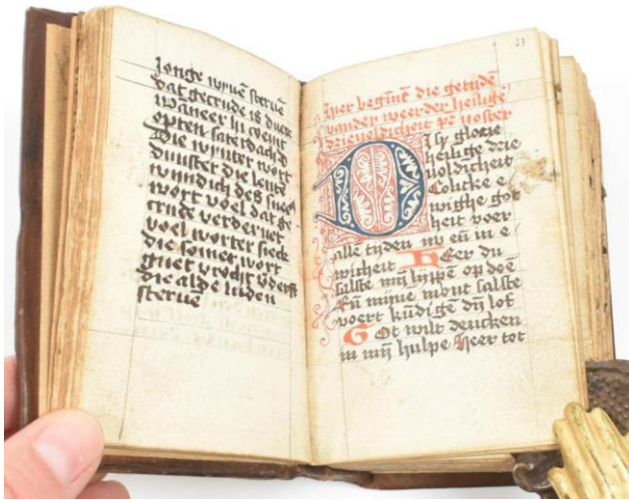 Jonge wyuē steruē
dat getrude is duere
waneer hi coemt
opten saterdach d
Die wynter wort
duuster die leute
wyndich des
wort voel dat ge
truce verderuet
voel worter sieck
die somer wort
guet vrocht
die alde luden
steruē
23
Hier begint die getide
vander weerder heilige
drieuoldicheit pr noster
Dy glorie
heilige drie
uoldicheit
Eolicke e
wighe got
heit voer
alle tyden nv eñ in e
wicheit HEer du
salste mȳ lyppē op doē
Eñ mijne mont salste
voert kūdigē dȳ lof
GOt wilt dencken
in mȳ hulpe Heer tot